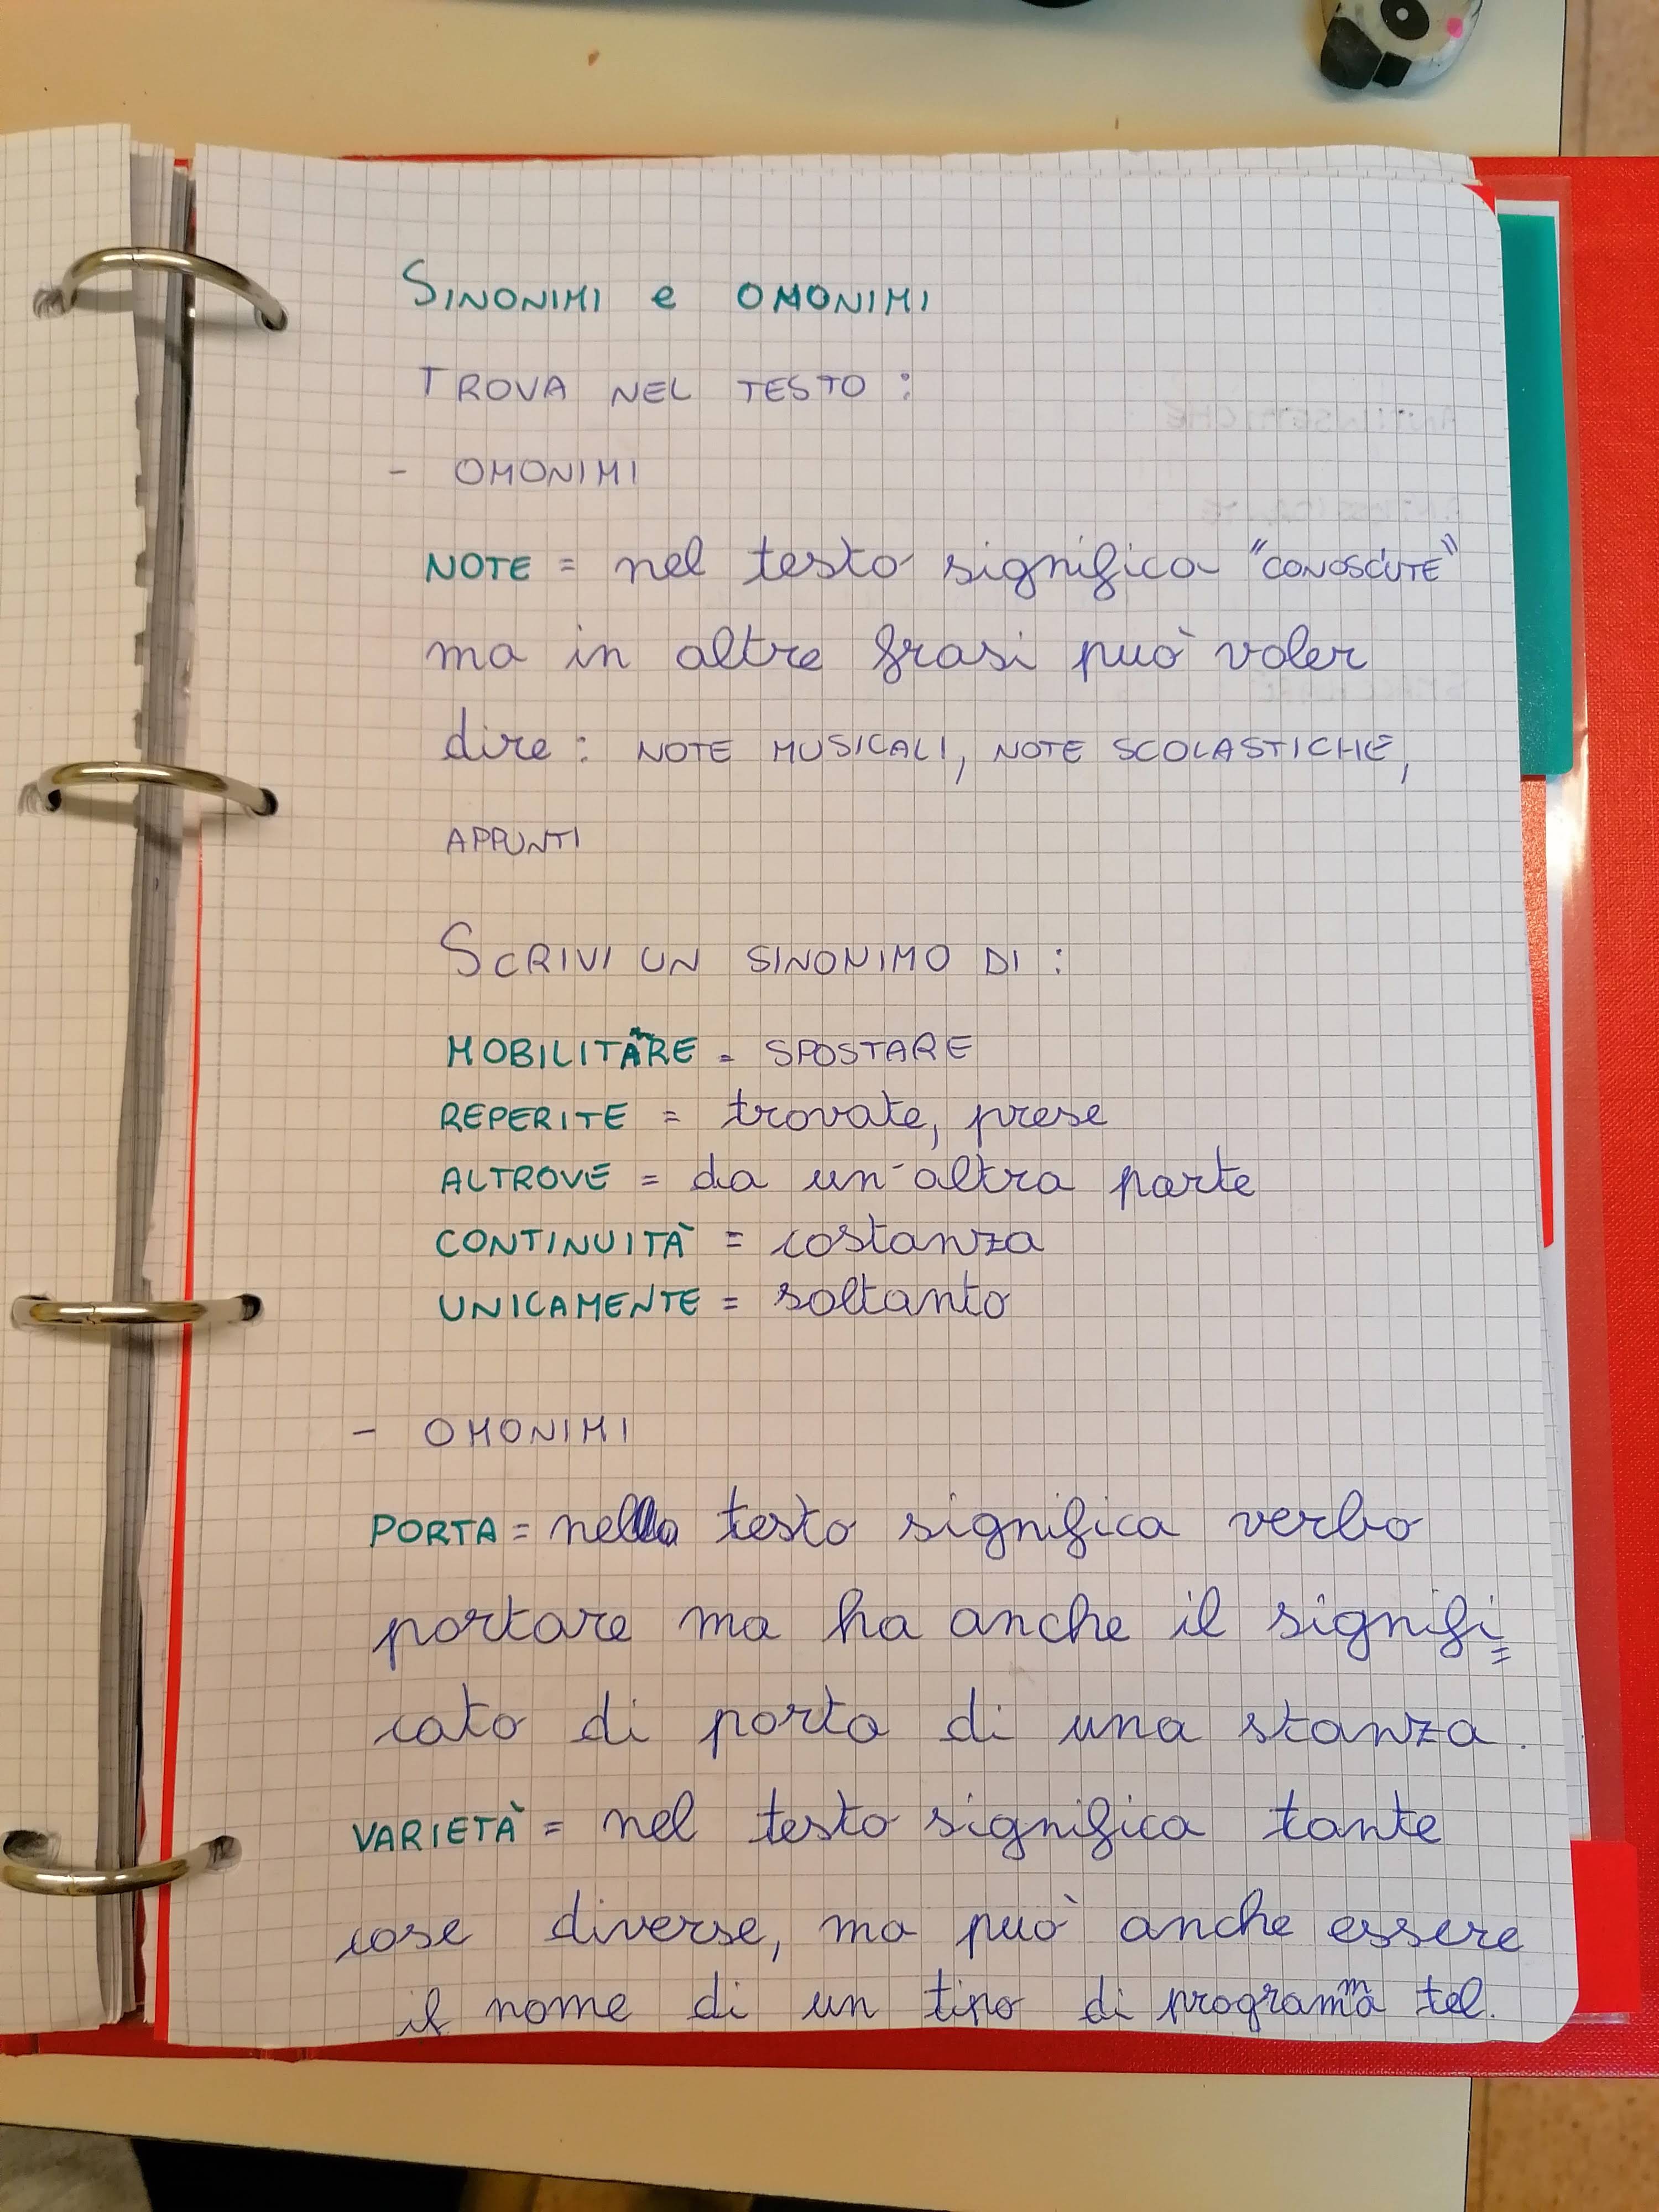 SINONIMI e OMONIMI
TROVA NEL TESTO :
- OMONIMI
NOTE = nel testo significa "CONOSCIUTE"
ma in altre frasi può voler
dire : NOTE MUSICALI, NOTE SCOLASTICHE,
APPUNTI
SCRIVI UN SINONIMO DI :
MOBILITARE = SPOSTARE
REPERITE = trovate, prese
ALTROVE = da un'altra parte
CONTINUITÀ = costanza
UNICAMENTE = soltanto
- OMONIMI
PORTA = nel testo significa verbo
portare ma ha anche il signifi=
cato di porta di una stanza.
VARIETÀ = nel testo significa tante
cose diverse, ma può anche essere
il nome di un tipo di programma tel.